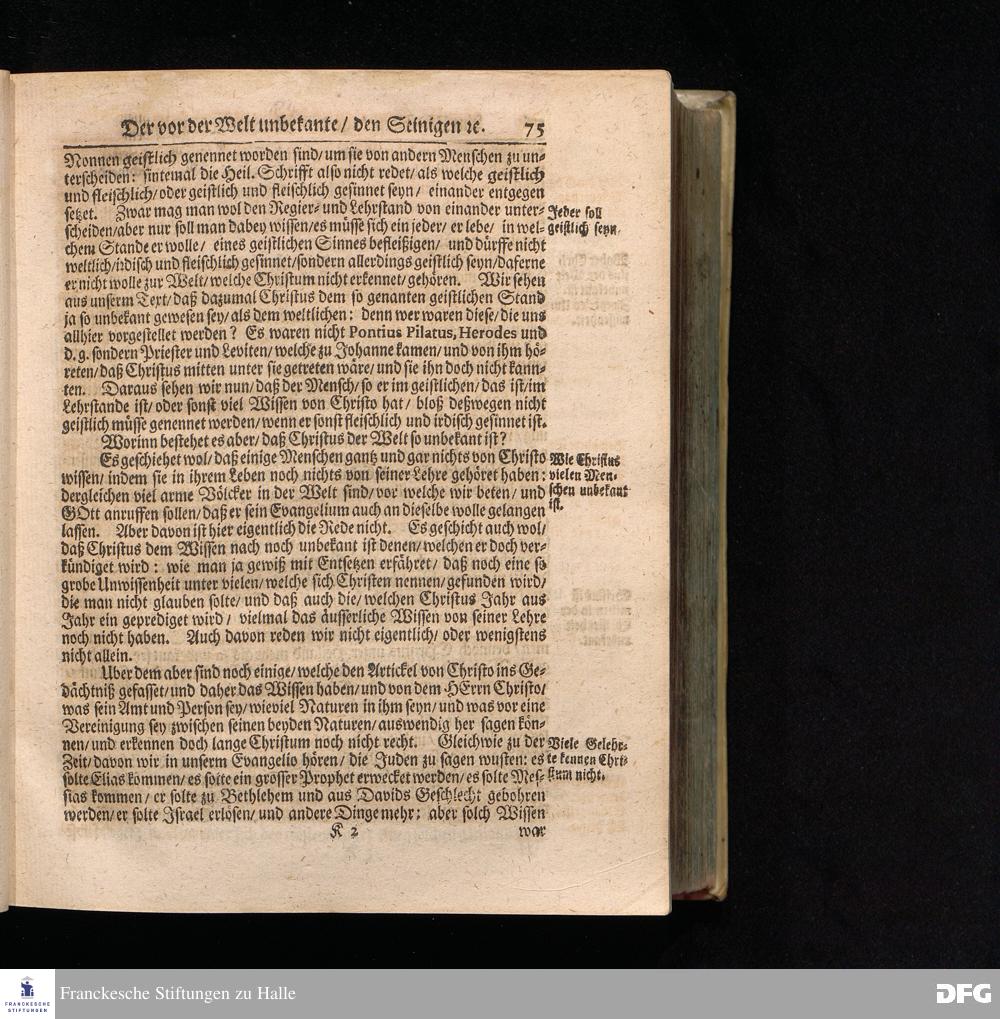 Der vor der Welt unbekante/ den Seinigen ꝛc. 75
Nonnen geistlich genennet worden sind/ um sie von andern Menschen zu un-
terscheiden: sintemal die Heil. Schrifft also nicht redet/ als welche geistlich
und fleischlich/ oder geistlich und fleischlich gesinnet seyn/ einander entgegen
setzet. Zwar mag man wol den Regier- und Lehrstand von einander unter-
scheiden/ aber nur soll man dabey wissen/ es müsse sich ein jeder/ er lebe/ in wel-
chem Stande er wolle/ eines geistlichen Sinnes befleißigen/ und dürffe nicht
weltlich/ irdisch und fleischlich gesinnet/ sondern allerdings geistlich seyn/ daferne
er nicht wolle zur Welt/ welche Christum nicht erkennet/ gehören. Wir sehen
aus unserm Text/ daß dazumal Christus dem so genanten geistlichen Stand
ja so unbekant gewesen sey/ als dem weltlichen: denn wer waren diese/ die uns
allhier vorgestellet werden? Es waren nicht Pontius Pilatus, Herodes und
d. g. sondern Priester und Leviten/ welche zu Johanne kamen/ und von ihm hö-
reten/ daß Christus mitten unter sie getreten wäre/ und sie ihn doch nicht kann-
ten. Daraus sehen wir nun/ daß der Mensch/ so er im geistlichen/ das ist/ im
Lehrstande ist/ oder sonst viel Wissen von Christo hat/ bloß deßwegen nicht
geistlich müsse genennet werden/ wenn er sonst fleischlich und irdisch gesinnet ist.
Worinn bestehet es aber/ daß Christus der Welt so unbekant ist?
Es geschiehet wol/ daß einige Menschen gantz und gar nichts von Christo
wissen/ indem sie in ihrem Leben noch nichts von seiner Lehre gehöret haben:
dergleichen viel arme Völcker in der Welt sind/ vor welche wir beten/ und
GOtt anruffen sollen/ daß er sein Evangelium auch an dieselbe wolle gelangen
lassen. Aber davon ist hier eigentlich die Rede nicht. Es geschicht auch wol/
daß Christus dem Wissen nach noch unbekant ist denen/ welchen er doch ver-
kündiget wird: wie man ja gewiß mit Entsetzen erfähret/ daß noch eine so
grobe Unwissenheit unter vielen/ welche sich Christen nennen/ gefunden wird/
die man nicht glauben solte/ und daß auch die/ welchen Christus Jahr aus
Jahr ein geprediget wird/ vielmal das äusserliche Wissen von seiner Lehre
noch nicht haben. Auch davon reden wir nicht eigentlich/ oder wenigstens
nicht allein.
Uber dem aber sind noch einige/ welche den Artickel von Christo ins Ge-
dächtniß gefasset/ und daher das Wissen haben/ und von dem HErrn Christo/
was sein Amt und Person sey/ wieviel Naturen in ihm seyn/ und was vor eine
Vereinigung sey zwischen seinen beyden Naturen/ auswendig her sagen kön-
nen/ und erkennen doch lange Christum noch nicht recht. Gleichwie zu der
Zeit/ davon wir in unserm Evangelio hören/ die Juden zu sagen wusten: es
solte Elias kommen/ es solte ein grosser Prophet erwecket werden/ es solte Mes-
sias kommen/ er solte zu Bethlehem und aus Davids Geschlecht gebohren
werden/ er solte Israel erlösen/ und andere Dinge mehr: aber solch Wissen
K 2 war
Jeder soll
geistlich seyn.
Wie Christus
vielen Men-
schen unbekant
ist.
Viele Gelehr-
te kennen Chri-
stum nicht.
FRANCKESCHE
STIFTUNGEN
Franckesche Stiftungen zu Halle
DFG